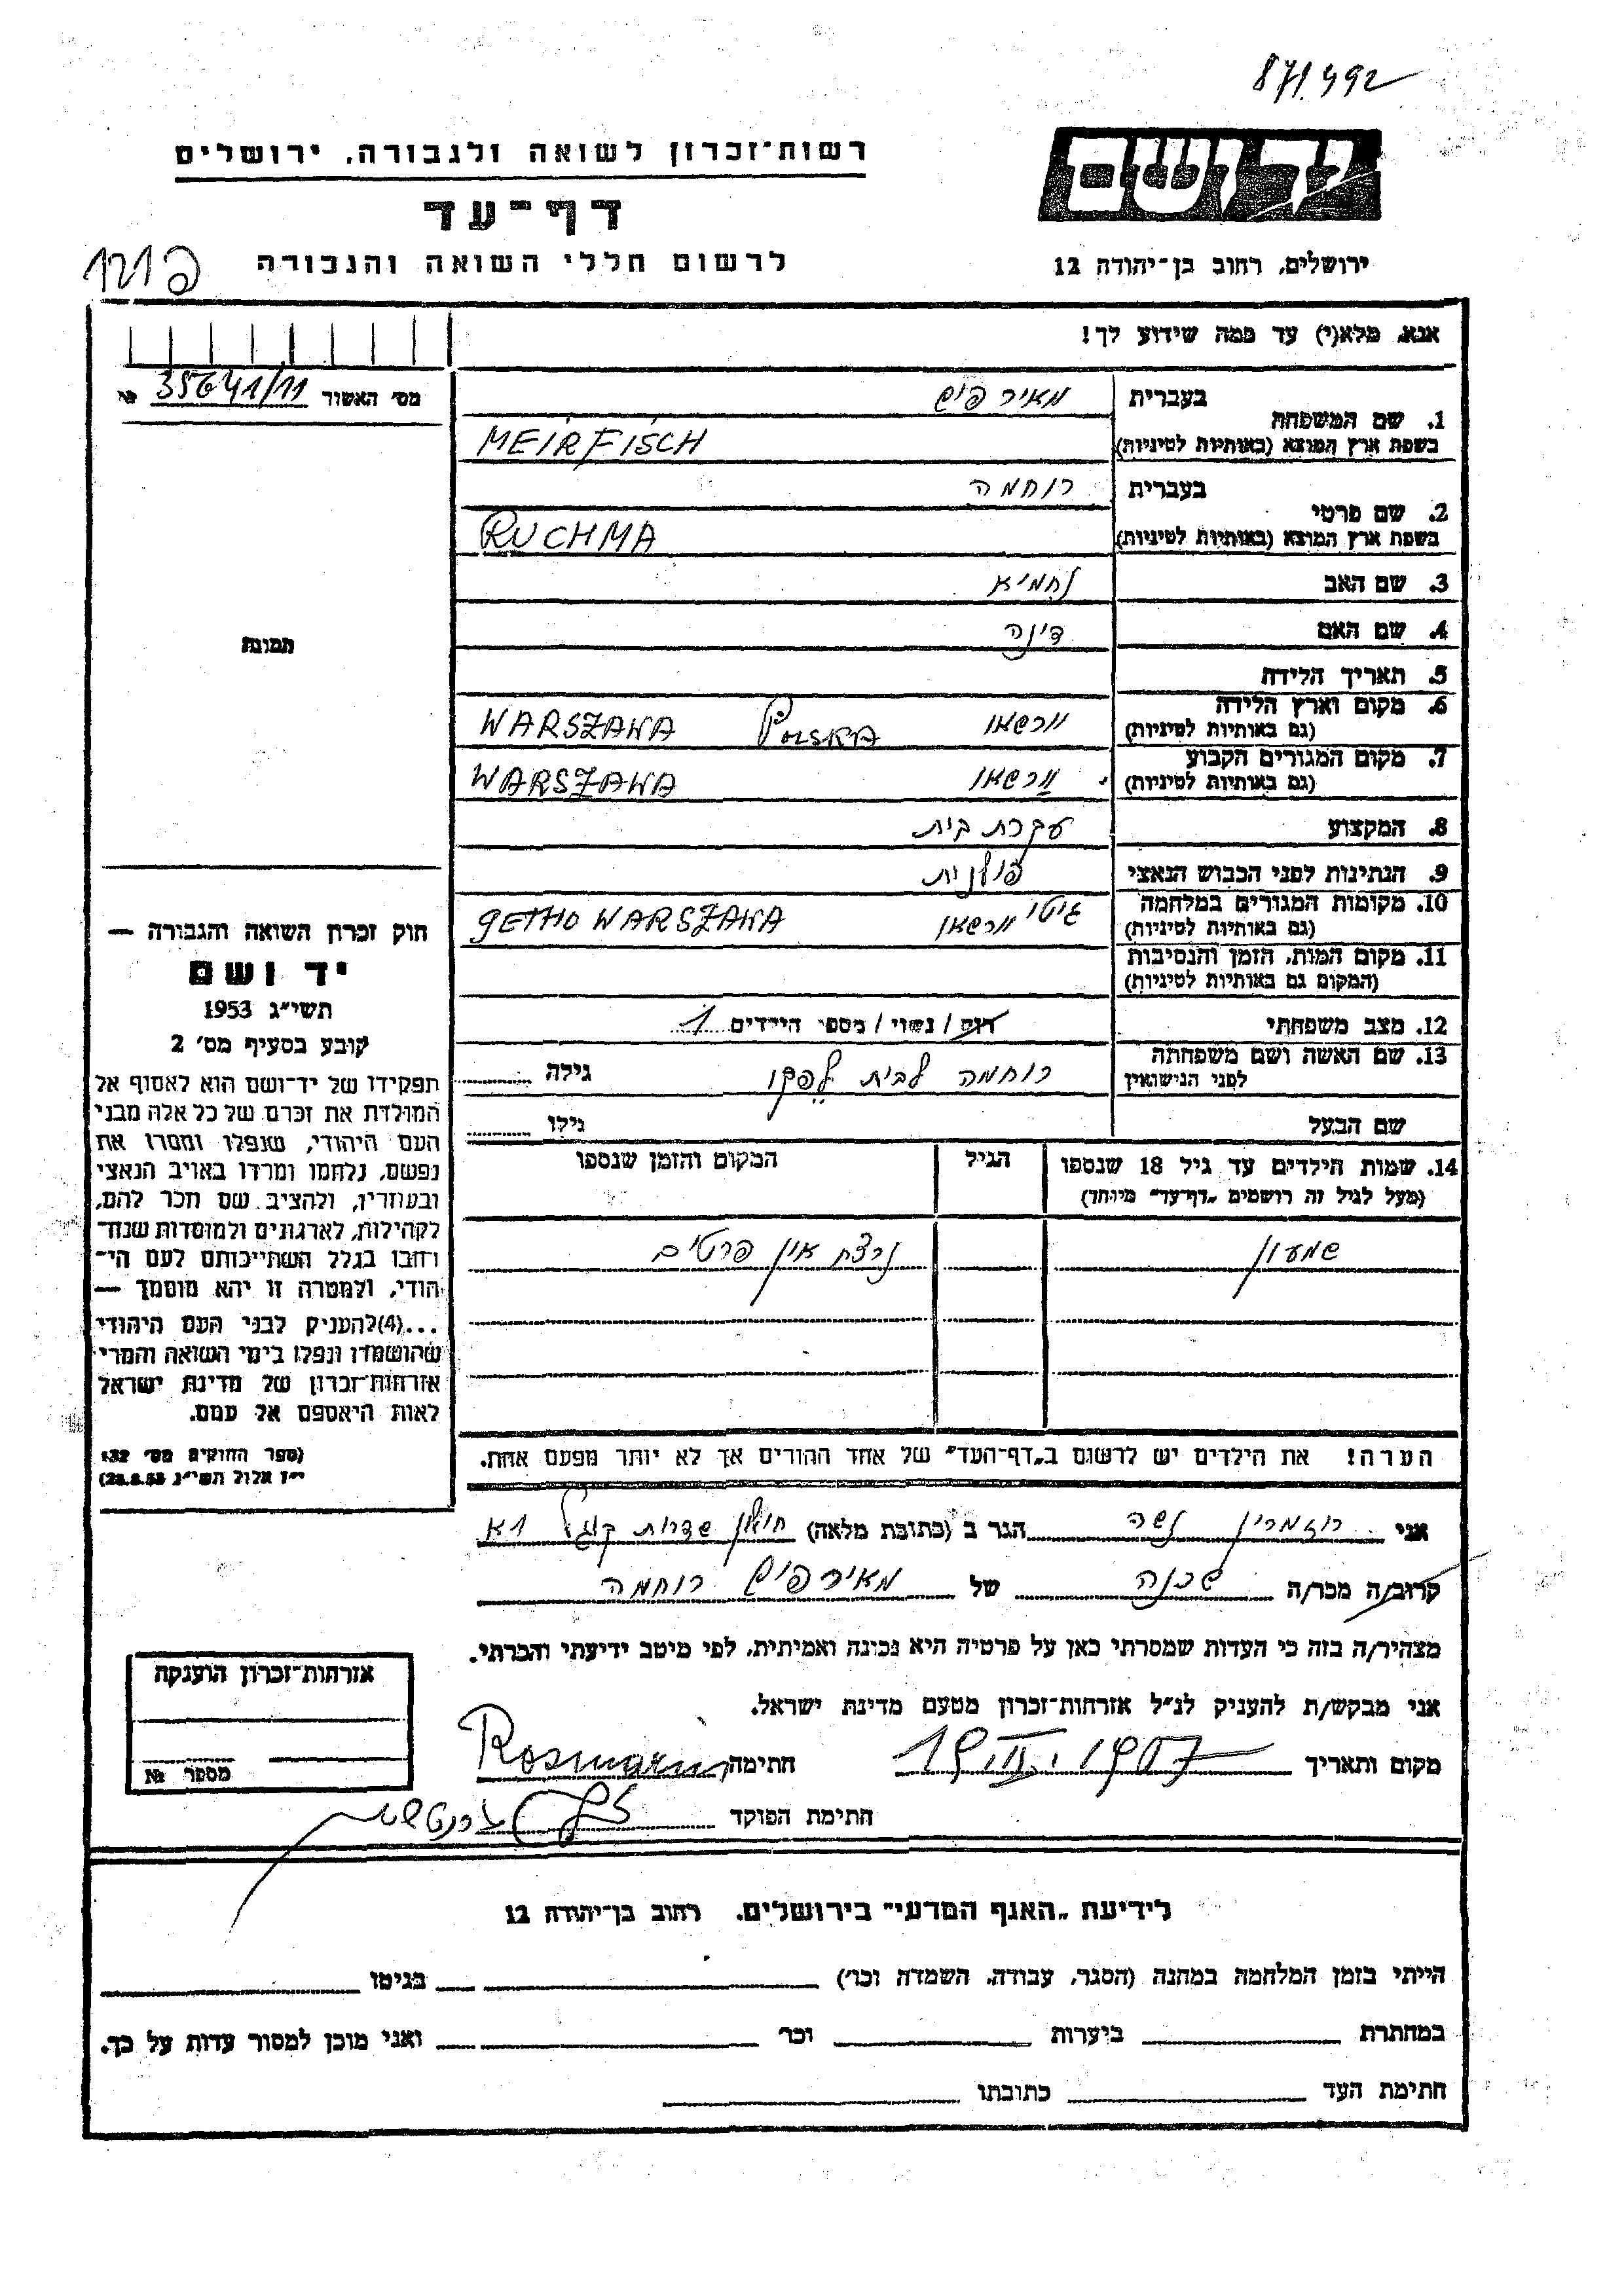 871.992
רשות־זכרון לשואה ולגבורה, ירושלים
יד ושם
דף־עד
לרשום חללי השואה והגבורה
ירושלים, רחוב בן־יהודה 12
אנא, מלא(י) עד כמה שידוע לך!
מס׳ האשור 35641/11 №
1. שם המשפחה
בעברית מאיר פיש
בשפת ארץ המוצא (באותיות לטיניות) MEIRFISCH
2. שם פרטי
בעברית רוחמה
בשפת ארץ המוצא (באותיות לטיניות) RUCHMA
3. שם האב נחמיא
4. שם האם דינה
5. תאריך הלידה
6. מקום וארץ הלידה
(גם באותיות לטיניות) וורשאו POLSKA WARSZAWA
7. מקום המגורים הקבוע
(גם באותיות לטיניות) וורשאו WARSZAWA
8. המקצוע עקרת בית
9. הנתינות לפני הכבוש הנאצי פולנית
10. מקומות המגורים במלחמה
(גם באותיות לטיניות) גיטו וורשאו GETTHO WARSZAWA
11. מקום המות, הזמן והנסיבות
(המקום גם באותיות לטיניות)
12. מצב משפחתי רווק / נשוי / מספר הילדים 1
13. שם האשה ושם משפחתה
לפני הנישואין רוחמה לבית גילה
שם הבעל גילו
14. שמות הילדים עד גיל 18 שנספו הגיל המקום והזמן שנספו
(מעל לגיל זה רושמים „דף־עד״ מיוחד)
שמעון נרצח אין פרטים
הערה! את הילדים יש לרשום ב„דף־העד״ של אחד ההורים אך לא יותר מפעם אחת.
תמונה
חוק זכרון השואה והגבורה —
יד ושם
תשי״ג 1953
קובע בסעיף מס׳ 2
תפקידו של יד־ושם הוא לאסוף אל
המולדת את זכרם של כל אלה מבני
העם היהודי, שנפלו ומסרו את
נפשם, נלחמו ומרדו באויב הנאצי
ובעוזריו, ולהציב שם וזכר להם,
לקהילות, לארגונים ולמוסדות שנח־
רחבו בגלל השתייכותם לעם הי־
הודי, ולמטרה זו יהא מוסמך —
...(4) להעניק לבני העם היהודי
שהושמדו ונפלו בימי השואה והמרי
אזרחות־זכרון של מדינת ישראל
לאות היאספם אל עמם.
(ספר החוקים מס׳ 132
י״ז אלול תשי״ג 28.8.53)
אני רוזמרין נשה הגר ב (כתובת מלאה) חולון שדרות קוגל 1א
קרוב/ה מכר/ה שכנה של מאירפיש רוחמה
מצהיר/ה בזה כי העדות שמסרתי כאן על פרטיה היא נכונה ואמיתית, לפי מיטב ידיעתי והכרתי.
אני מבקש/ת להעניק לנ״ל אזרחות־זכרון מטעם מדינת ישראל.
מקום ותאריך חתימה Rosmarin
חתימת הפוקד
אזרחות־זכרון הוענקה
מספר №
לידיעת „האגף המדעי״ בירושלים, רחוב בן־יהודה 12
הייתי בזמן המלחמה במחנה (הסגר, עבודה, השמדה וכר׳) בגיטו
במחתרת ביערות וכר׳ ואני מוכן למסור עדות על כך.
חתימת העד כתובתו